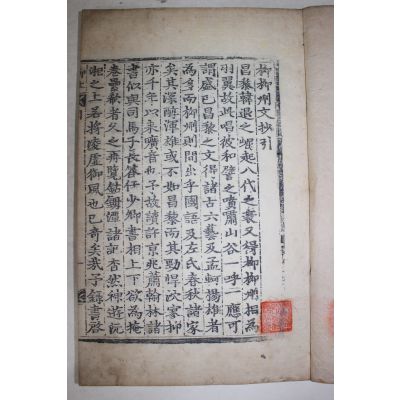 柳柳州文抄引
昌黎韓退之崛起八代之衰又得柳柳州相為
羽翼故此唱彼和譬之噴嘯山谷一呼一應可
謂盛已昌黎之文得諸古六藝及孟軻揚雄者
為多而柳州則間出乎國語及左氏春秋諸家
矣其深醇渾雄或不如昌黎而其勁悍泬寥抑
亦千年以來曠音也予故讀許京兆蕭翰林諸
書似與司馬子長答任少卿書相上下欲為掩
卷纍欷者久之再覽鈷鉧潭諸記杳然神遊沅
湘之上若將凌虛御風也已奇矣哉予錄書啓